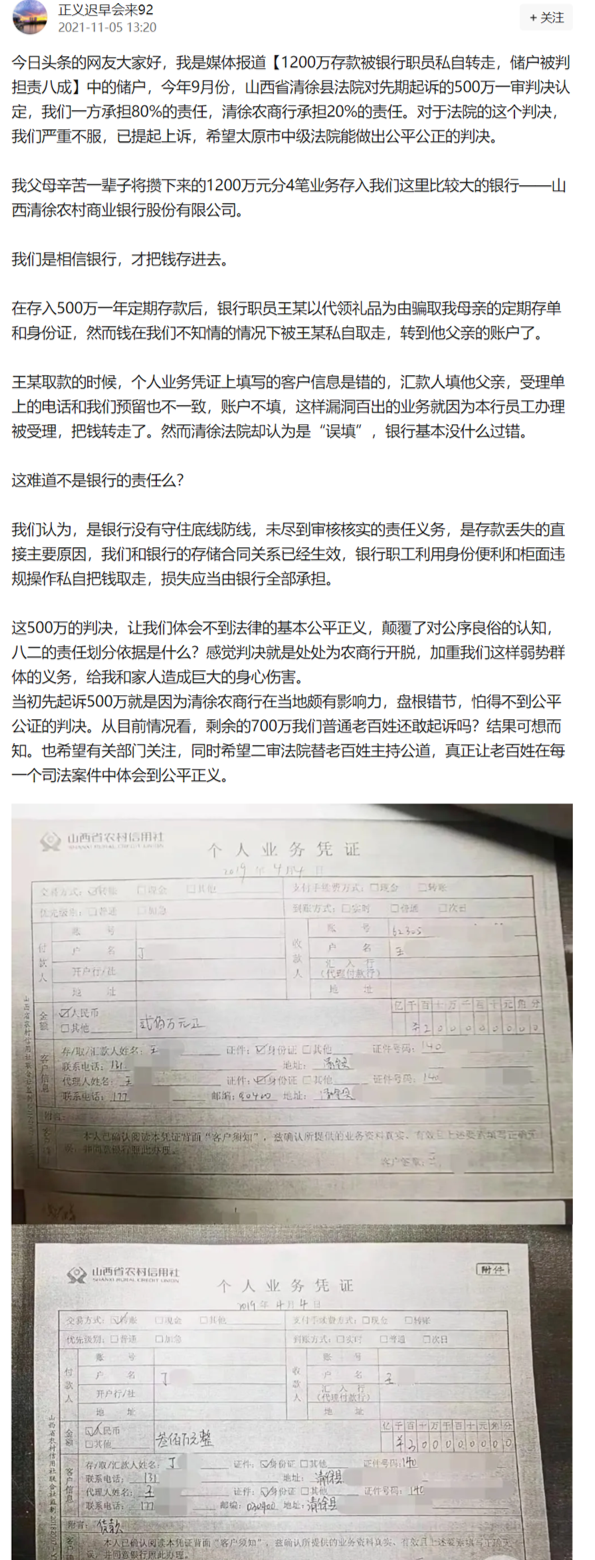 正义迟早会来92
2021-11-05 13:20
+ 关注
今日头条的网友大家好，我是媒体报道【1200万存款被银行职员私自转走，储户被判
担责八成】中的储户，今年9月份，山西省清徐县法院对先期起诉的500万一审判决认
定，我们一方承担80%的责任，清徐农商行承担20%的责任。对于法院的这个判决，
我们严重不服，已提起上诉，希望太原市中级法院能做出公平公正的判决。
我父母辛苦一辈子将攒下来的1200万元分4笔业务存入我们这里比较大的银行——山
西清徐农村商业银行股份有限公司。
我们是相信银行，才把钱存进去。
在存入500万一年定期存款后，银行职员王某以代领礼品为由骗取我母亲的定期存单
和身份证，然而钱在我们不知情的情况下被王某私自取走，转到他父亲的账户了。
王某取款的时候，个人业务凭证上填写的客户信息是错的，汇款人填他父亲，受理单
上的电话和我们预留也不一致，账户不填，这样漏洞百出的业务就因为本行员工办理
被受理，把钱转走了。然而清徐法院却认为是“误填”，银行基本没什么过错。
这难道不是银行的责任么？
我们认为，是银行没有守住底线防线，未尽到审核核实的责任义务，是存款丢失的直
接主要原因，我们和银行的存储合同关系已经生效，银行职工利用身份便利和柜面违
规操作私自把钱取走，损失应当由银行全部承担。
这500万的判决，让我们体会不到法律的基本公平正义，颠覆了对公序良俗的认知，
八二的责任划分依据是什么？感觉判决就是处处为农商行开脱，加重我们这样弱势群
体的义务，给我和家人造成巨大的身心伤害。
当初先起诉500万就是因为清徐农商行在当地颇有影响力，盘根错节，怕得不到公平
公证的判决。从目前情况看，剩余的700万我们普通老百姓还敢起诉吗？结果可想而
知。也希望有关部门关注，同时希望二审法院替老百姓主持公道，真正让老百姓在每
一个司法案件中体会到公平正义。
山西省农村信用社
个人业务凭证
2019年4月4日
交易方式：转账 现金 其他 支付手续费方式：现金 转账
优先级别：普通 加急 到账方式：实时 普通 次日
付款人 账号 收款人 账号
户名 丁 户名 王
开户行/社 汇入行（代理付款行）
地址 地址
金额 人民币 其他 贰佰万元正 亿千百十万千百十元角分 ¥200000000
客户信息 存/取/汇款人姓名：王 证件：身份证 其他 证件号码：140
联系电话：131 地址：清徐县
代理人姓名：王 证件：身份证 其他 证件号码：140
联系电话：177 邮编： 地址：清徐县
本人已确认阅读本凭证背面“客户须知”，兹确认所提供的业务资料真实、有效
客户签章：王
山西省农村信用社
附件
个人业务凭证
2019年4月4日
交易方式：转账 现金 其他 支付手续费方式：现金 转账
优先级别：普通 加急 到账方式：实时 普通 次日
付款人 账号 收款人 账号
户名 丁 户名 王
开户行/社 汇入行（代理付款行）
地址 地址
金额 人民币 其他 叁佰万元整 亿千百十万千百十元角分 ¥300000000
客户信息 存/取/汇款人姓名：丁 证件：身份证 其他 证件号码：140
联系电话：131 地址：清徐县
代理人姓名：王 证件：身份证 其他 证件号码：140
联系电话：177 邮编：030400 地址：清徐县
附言：货款
本人已确认阅读本凭证背面“客户须知”，兹确认所提供的业务资料真实、有效